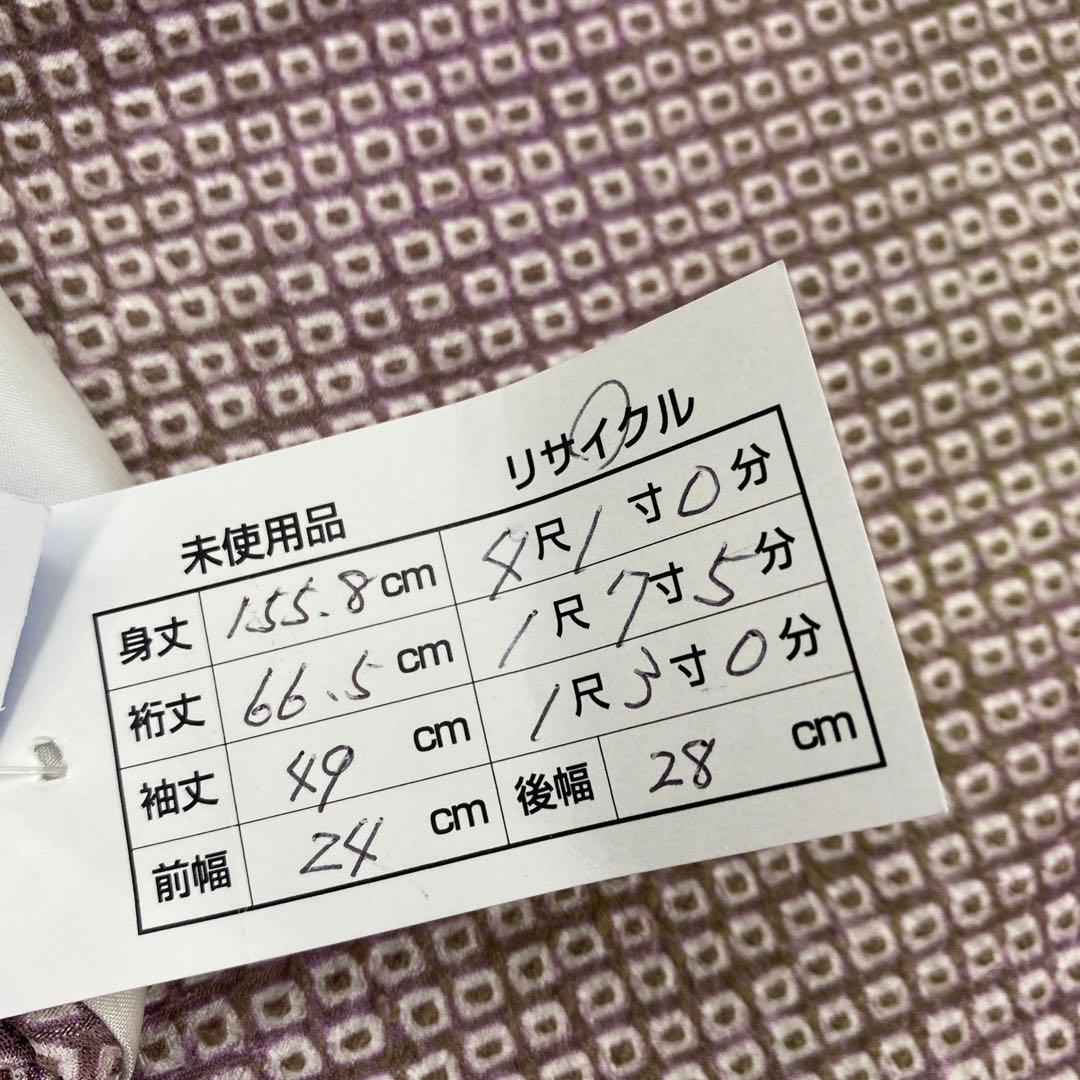 未使用品 リサイクル
身丈 155.8cm 4尺1寸0分
裄丈 66.5cm 1尺7寸5分
袖丈 49cm 1尺3寸0分
前幅 24cm 後幅 28cm